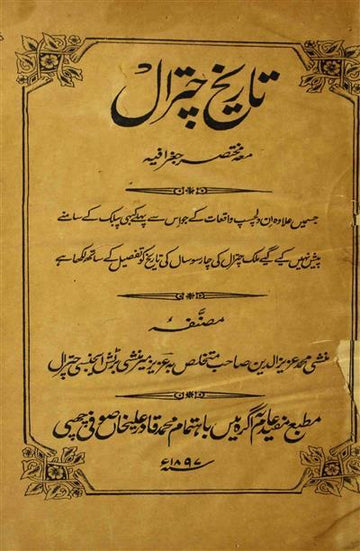 تاریخ چترال
معہ مختصر جغرافیہ
جسمیں علاوہ ان دلچسپ واقعات کے جو اس سے پہلے کسی پبلک کے سامنے
پیش نہیں کیے گیے ملک چترال کی چار سو سال کی تاریخ کو تفصیل کے ساتھ لکھا ہے
مصنفہ
منشی محمد عزیز الدین صاحب متخلص بہ عزیز میر منشی برٹش ایجنسی چترال
مطبع مفید عام آگرہ میں باہتمام محمد قادر علیخان صوفی چھپی
۱۸۹۷ء